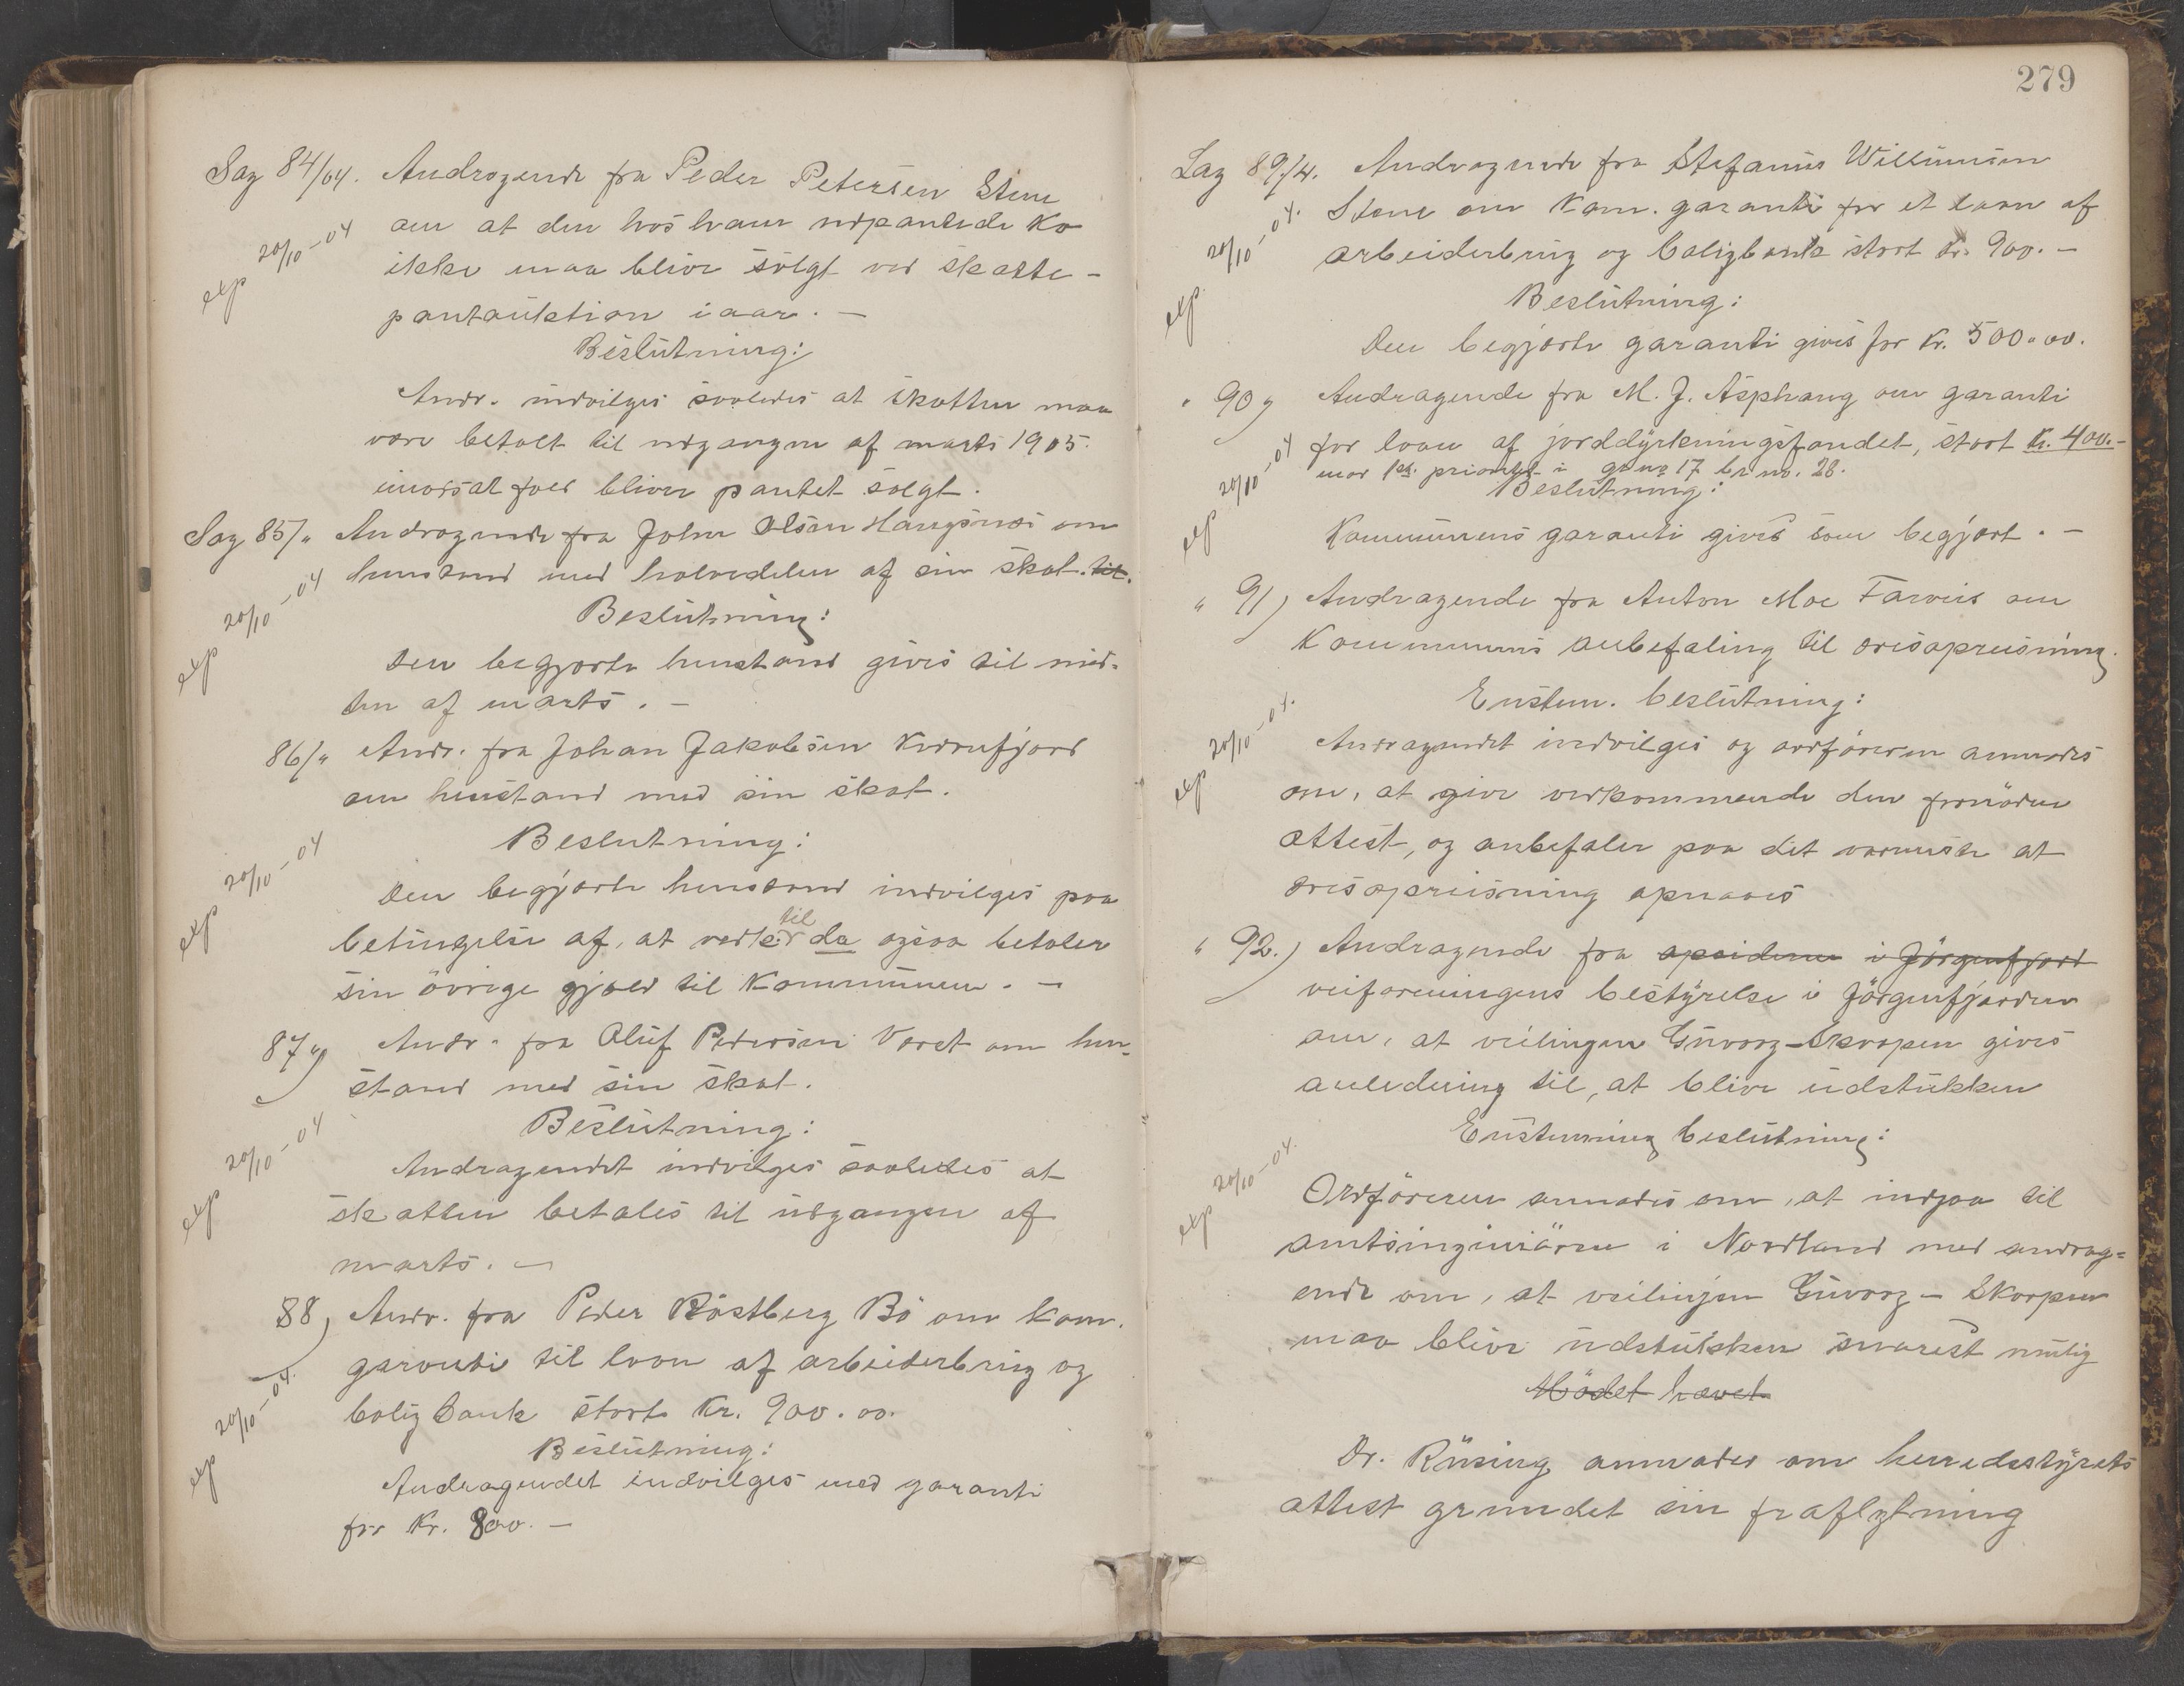 Sag 84/04. Andragende fra Peder Petersen Stene
om at den hos ham udpantede Ko
exp 20/10-04
ikke maa blive solgt ved skatte-
pantauktion iaar. -
Beslutning:
Andr. indvilges saaledes at skatten maa
være betalt til udgangen af marts 1905.
imodsat fald bliver pantet solgt.
Sag 85/" Andragende fra Johan Olsen Haugsnes om
henstand med halvdelen af sin skat. til.
exp 20/10-04
Beslutning:
Den begjærte henstand gives til mid-
ten af marts. -
86/" Andr. fra Johan Jakobsen Kvernfjord
om henstand med sin skat.
Beslutning:
exp 20/10-04
Den begjærte henstand indvilges paa
til
betingelse af, at vedk. da ogsaa betaler
sin övrige gjæld til Kommunen. -
87" Andr. fra Oluf Pedersen Været om hen-
stand med sin skat.
Beslutning:
exp 20/10-04
Andragendet indvilges saaledes at
skatten betales til udgangen af
marts. -
88) Andr. fra Peder Röstberg Bö om kom.
garanti til laan af arbeiderbrug og
exp 20/10-04.
boligbank stort Kr. 900.00.
Beslutning:
Andragendet indvilges med garanti
for Kr. 800. -
279
Sag 89/4. Andragende fra Stefanus Willumsen
Stene om Kom. garanti for et laan af
exp. 20/10-04.
arbeiderbrug og boligbank stort kr. 900. -
Beslutning:
Den begjærte garanti gives for Kr. 500.00.
" 90) Andragende fra M. J. Asphaug om garanti
for laan af jorddyrkningsfondet, stort Kr. 400.-
mod 1ste prioritet i gr no 17 br no. 28.
exp 20/10-04
Beslutning:
Kommunens garanti gives som begjært. -
" 91) Andragende fra Anton Moe
Kommunens anbefaling til oreisopreisning.
Enstem. beslutning:
exp 20/10-04.
Andragendet indvilges og ordföreren anmodes
om, at give vedkommende den fornödne
attest, og anbefaler paa det varmeste at
æresopreisning opnaaes
" 92.) Andragende fra opsidderne i Jörgenfjord
veiforeningens bestyrelse i Jörgenfjorden
om, at veilinjen Guvaag-Skorpen gives
anledning til, at blive udstukken
Enstemmig beslutning:
exp 20/10-04.
Ordföreren anmodes om, at indgaa til
amtsingeniören i Nordland med andrag=
ende om, at veilinjen Guvaag - Skorpen
maa blive udstukken snarest mulig
Mödet hævet
Dr. Rüsing anmoder om herredsstyrets
attest grundet sin fraflytning